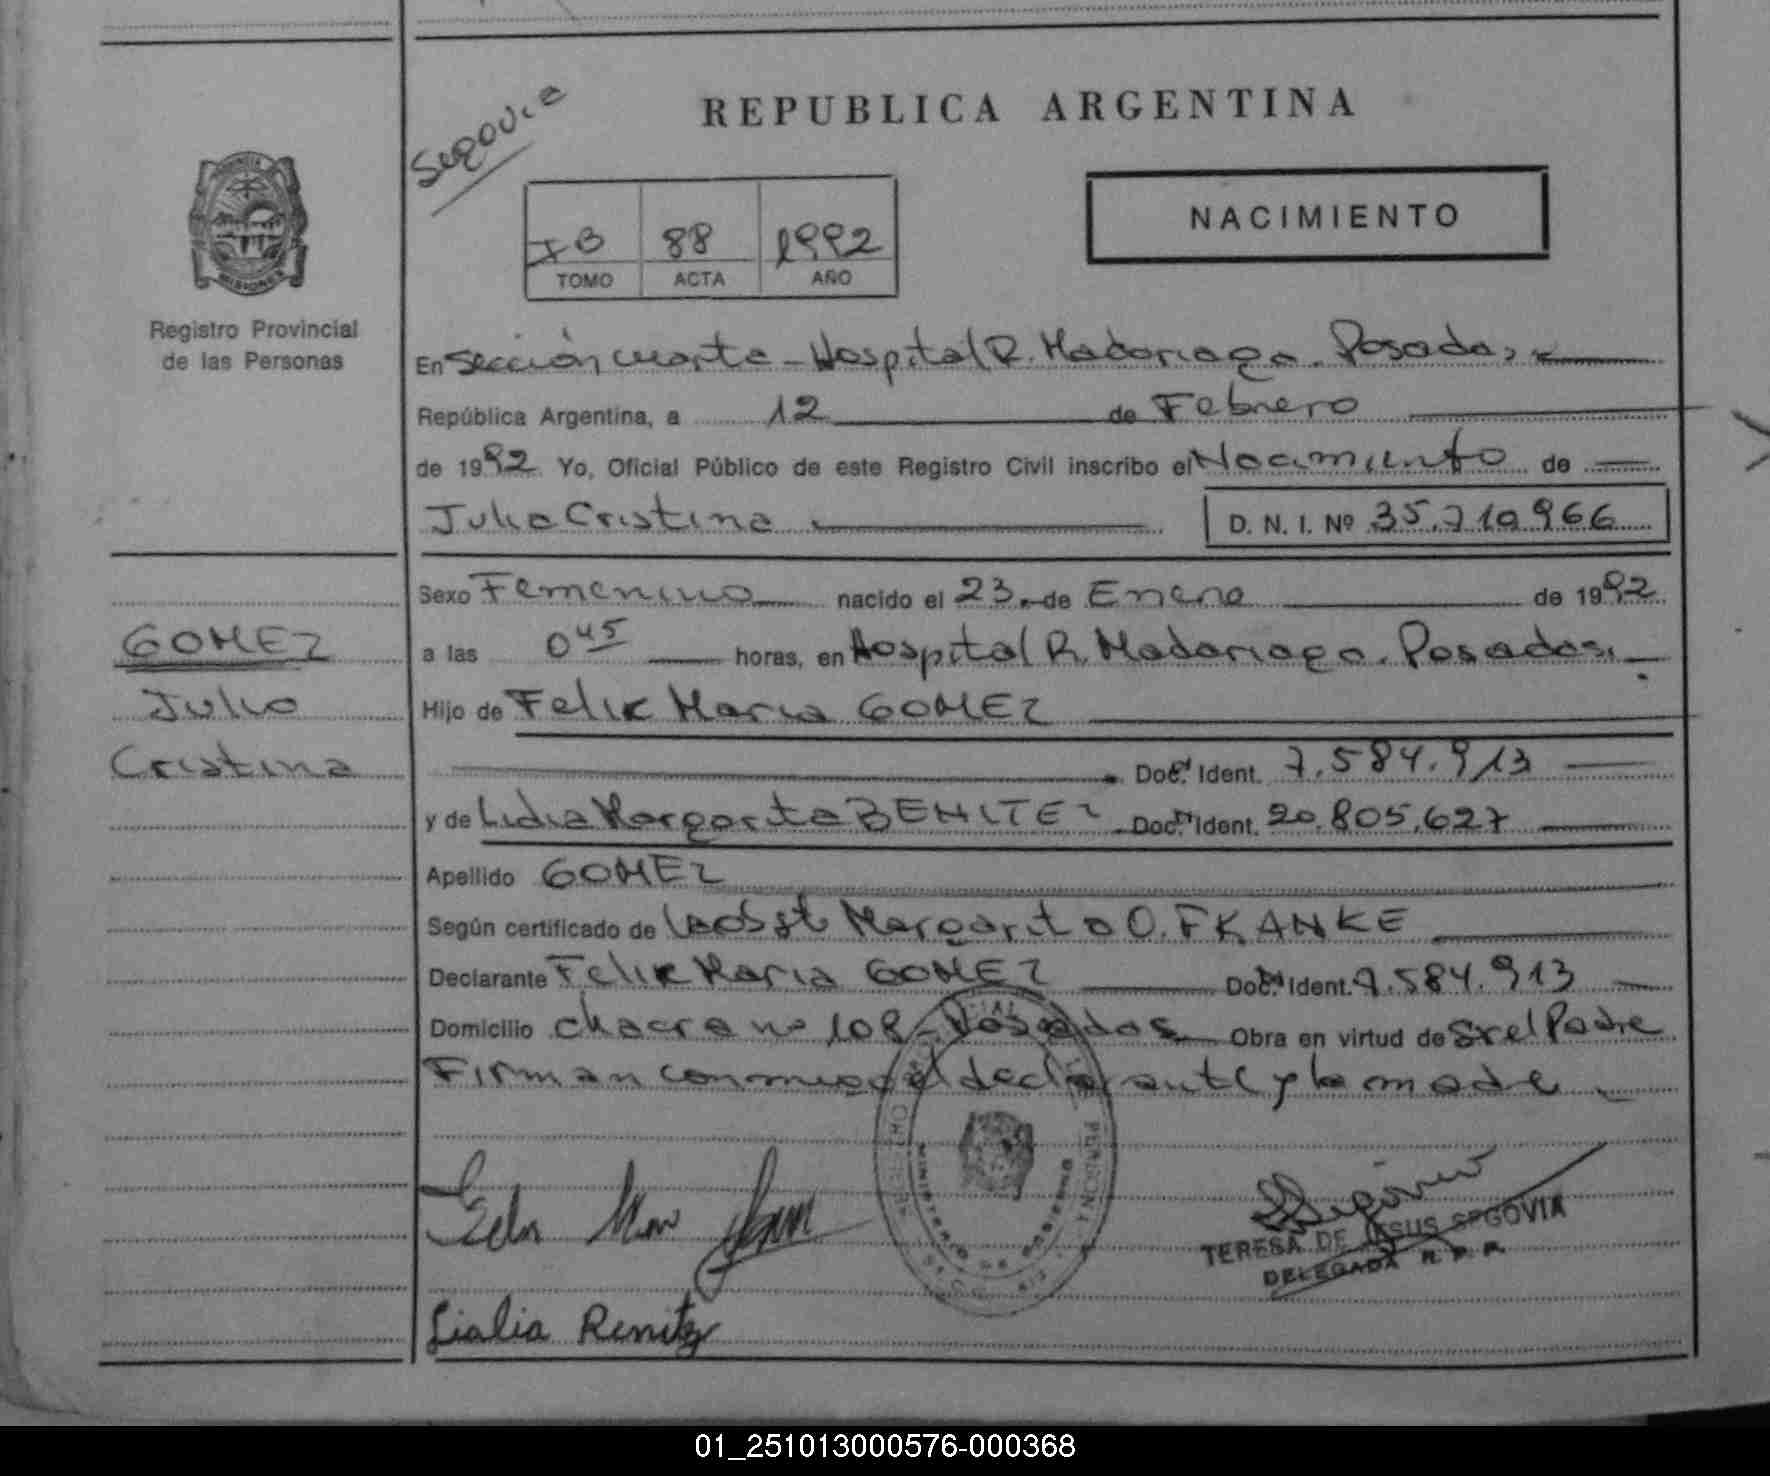 Segovia
REPUBLICA ARGENTINA
NACIMIENTO
IB 88 1992
TOMO ACTA AÑO
PROVINCIA
MISIONES
Registro Provincial
de las Personas
En Sección cuarta - Hospital R. Madariaga. Posadas,
República Argentina, a 12 de Febrero
de 1992 Yo, Oficial Público de este Registro Civil inscribo el Nacimiento de
Julia Cristina D. N. I. Nº 35.710966
Sexo Femenino nacido el 23 de Enero de 1992
GOMEZ
a las 0 45 horas, en Hospital R. Madariaga. Posadas.
Julia
Hijo de Felix Maria GOMEZ
Cristina
Doc. Ident. 7.584.913
y de Lidia Margarita BENITEZ Doc. Ident. 20.805.627
Apellido GOMEZ
Según certificado de Margarita O. FRANKE
Declarante Felix Maria GOMEZ Doc. Ident. 7.584.913
Domicilio chacra nº 108 - Posadas Obra en virtud de Sr el Padre
Firman conmigo el declarante y la madre
MINISTERIO DE GOBIERNO
TERESA DE JESUS SEGOVIA
DELEGADA R. P. P.
Lidia Benitez
01_251013000576-000368